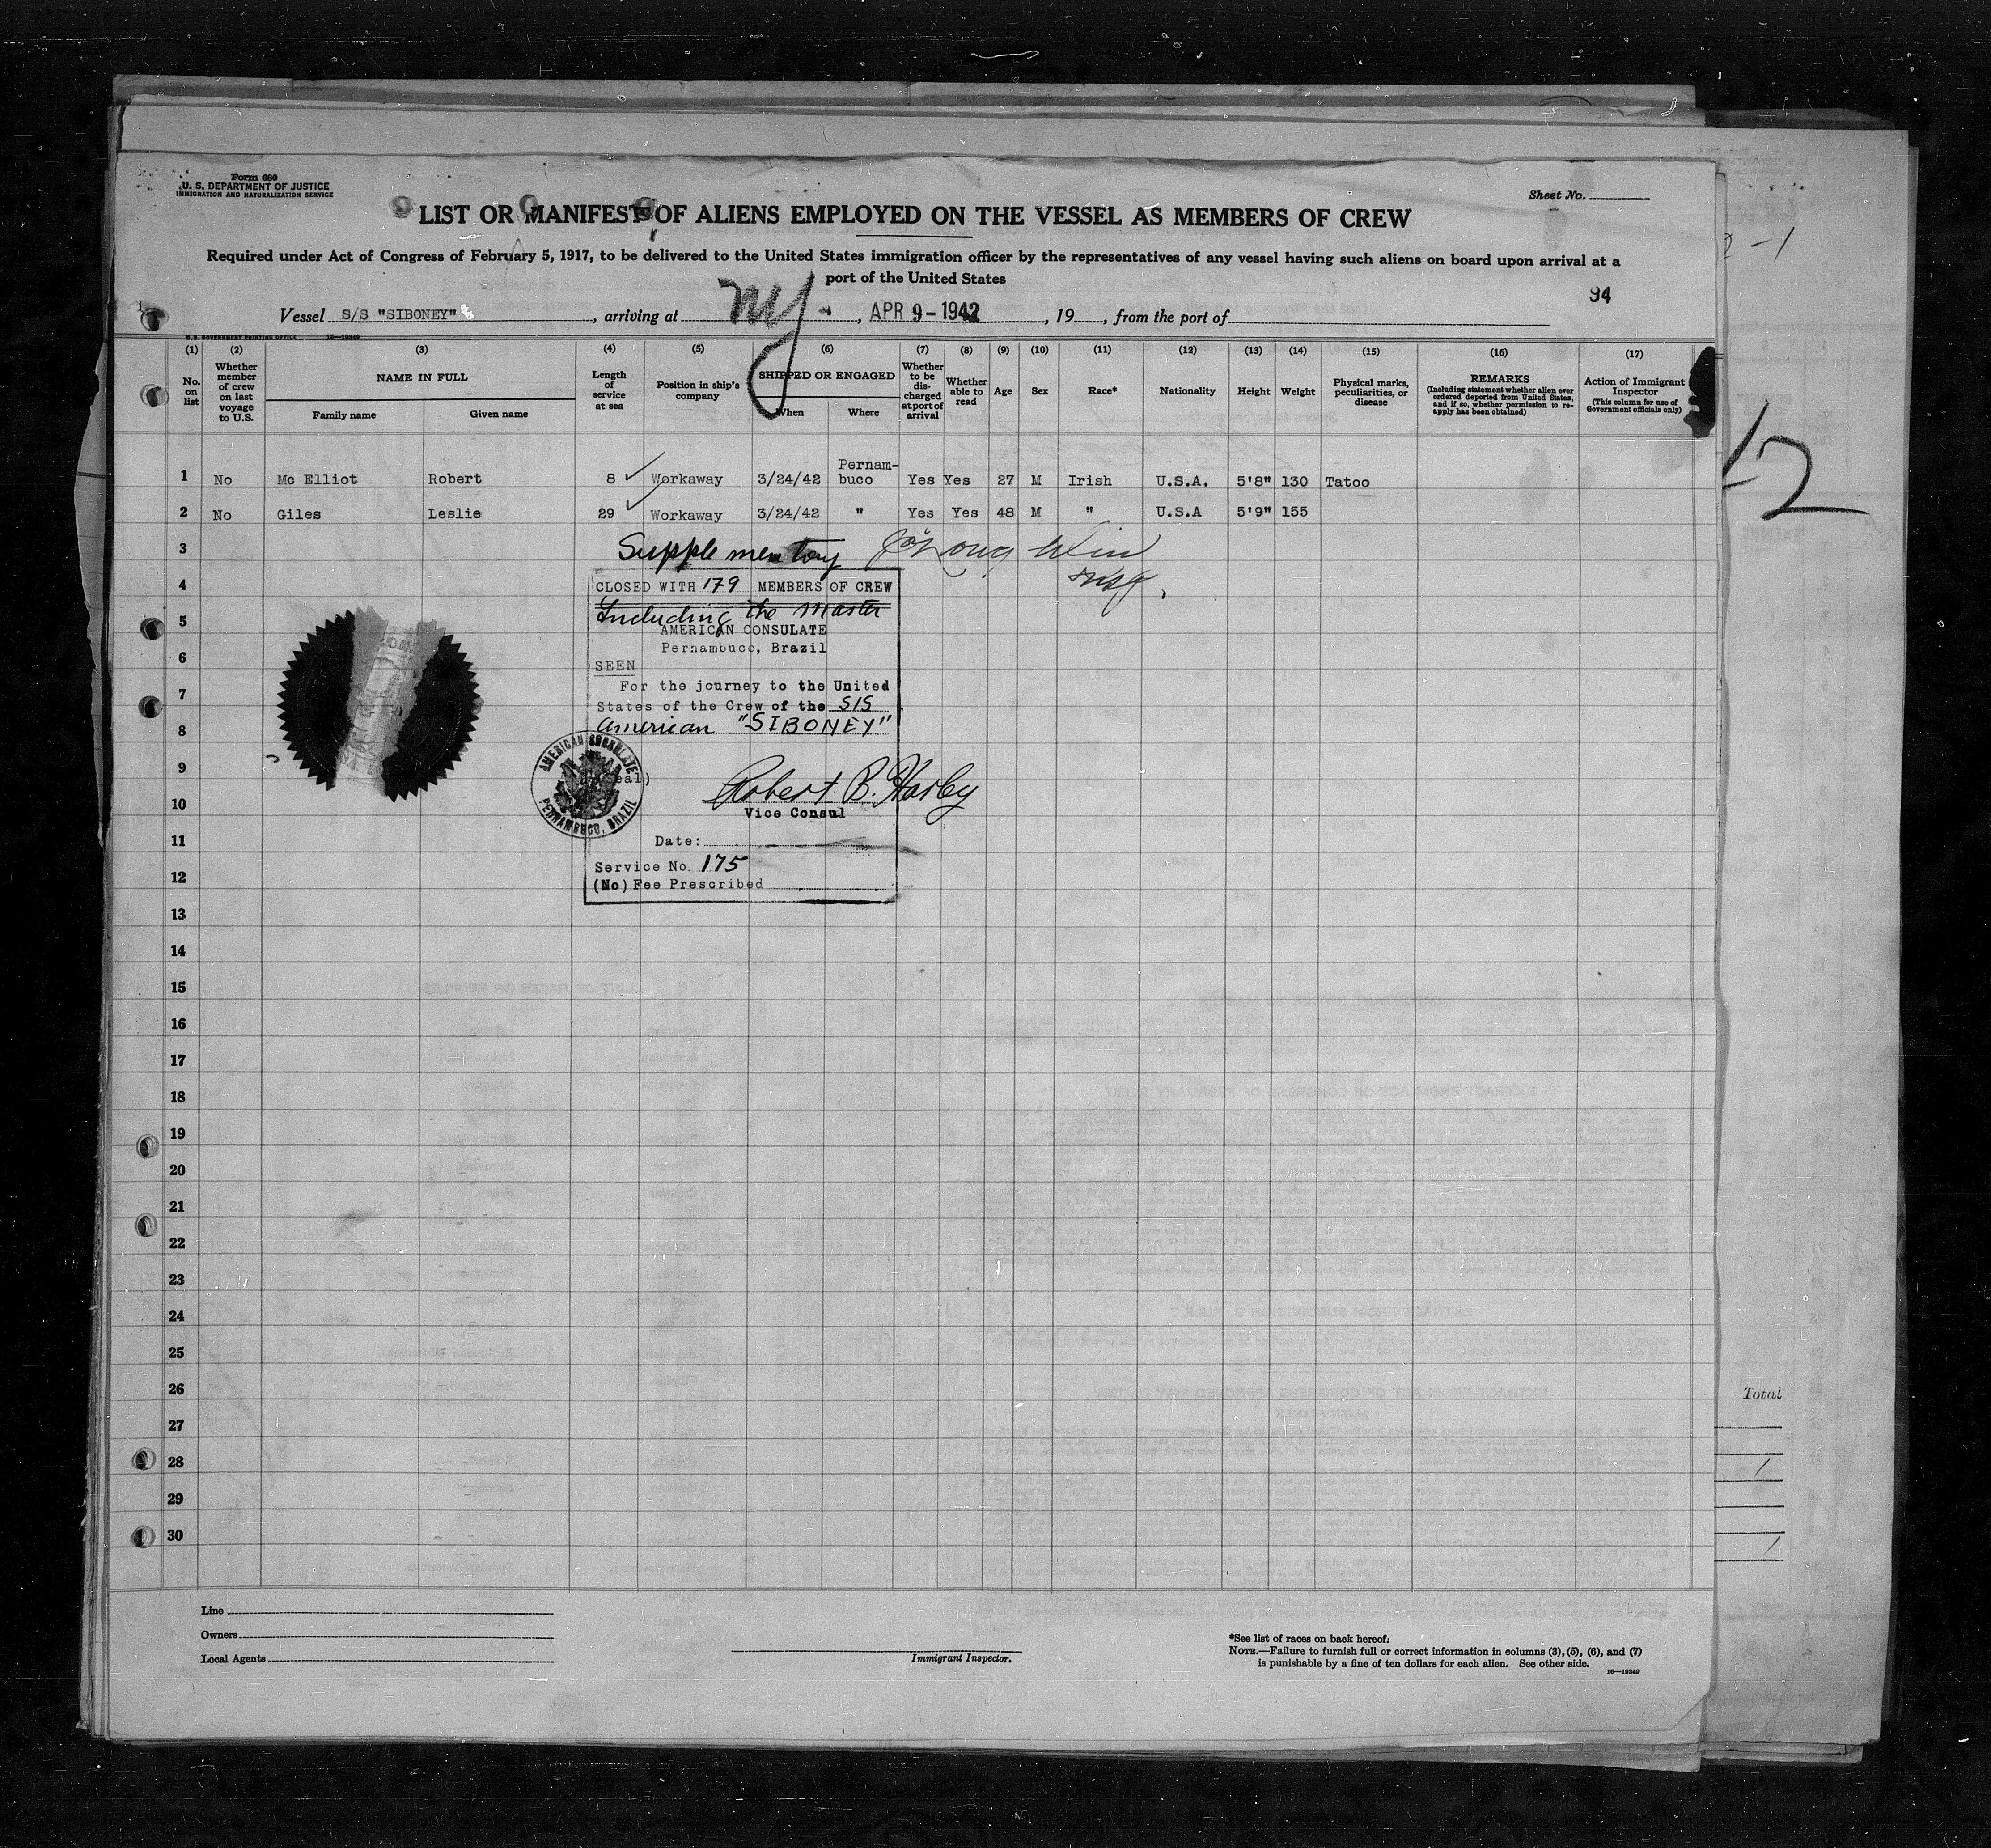 Form 680
U. S. DEPARTMENT OF JUSTICE
IMMIGRATION AND NATURALIZATION SERVICE
Sheet No.
LIST OR MANIFEST OF ALIENS EMPLOYED ON THE VESSEL AS MEMBERS OF CREW
Required under Act of Congress of February 5, 1917, to be delivered to the United States immigration officer by the representatives of any vessel having such aliens on board upon arrival at a
port of the United States
94
Vessel S/S "SIBONEY", arriving at NY, APR 9-1942, 19, from the port of
U.S. GOVERNMENT PRINTING OFFICE 16—19349
(1) (2) (3) (4) (5) (6) (7) (8) (9) (10) (11) (12) (13) (14) (15) (16) (17)
No. on list
Whether member of crew on last voyage to U.S.
NAME IN FULL
Family name
Given name
Length of service at sea
Position in ship's company
SHIPPED OR ENGAGED
When
Where
Whether to be discharged at port of arrival
Whether able to read
Age
Sex
Race*
Nationality
Height
Weight
Physical marks, peculiarities, or disease
REMARKS
(Including statement whether alien ever ordered deported from United States, and if so, whether permission to reapply has been obtained)
Action of Immigrant Inspector
(This column for use of Government officials only)
1 No Mc Elliot Robert 8 Workaway 3/24/42 Pernam-buco Yes Yes 27 M Irish U.S.A. 5'8" 130 Tatoo
2 No Giles Leslie 29 Workaway 3/24/42 " Yes Yes 48 M " U.S.A 5'9" 155
3
Supplementary
4
CLOSED WITH 179 MEMBERS OF CREW
Including the Master
5
AMERICAN CONSULATE
Pernambuco, Brazil
6
SEEN
7
For the journey to the United
States of the Crew of the S/S
8
American "SIBONEY"
AMERICAN CONSULATE
PERNAMBUCO, BRAZIL
9
10
Robert B. Harley
Vice Consul
11
Date:
Service No. 175
12
(No) Fee Prescribed
13
14
15
16
17
18
19
20
21
22
23
24
25
26
27
28
29
30
Line
Owners
Local Agents
Immigrant Inspector.
*See list of races on back hereof.
NOTE.—Failure to furnish full or correct information in columns (3), (5), (6), and (7)
is punishable by a fine of ten dollars for each alien. See other side.
16—19349
12
Total